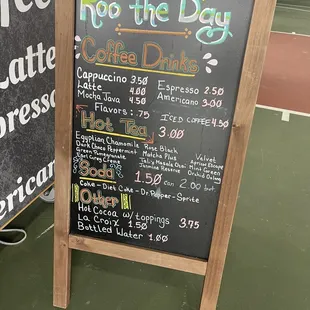 Roo the Day
Coffee Drinks
Cappuccino 3.50
Espresso 2.50
Latte 4.00
Americano 3.00
Mocha Java 4.50
Flavors: .75
ICED COFFEE 4.50
Hot Tea 3.00
Egyptian Chamomile
Rose Black
Velvet
Dark Choco Peppermint
Matcha Plus
Apricot Escape
Green Pomegranate
Tali's Masala Chai
Mint Green
Earl Grey Creme
Jasmine Reserve
Orchid Oolong
Soda
1.50 can 2.00 btl
Coke - Diet Coke - Dr. Pepper - Sprite
Other
Hot Cocoa w/ toppings 3.75
La Croix 1.50
Bottled Water 1.00
Latte
spresso
merican